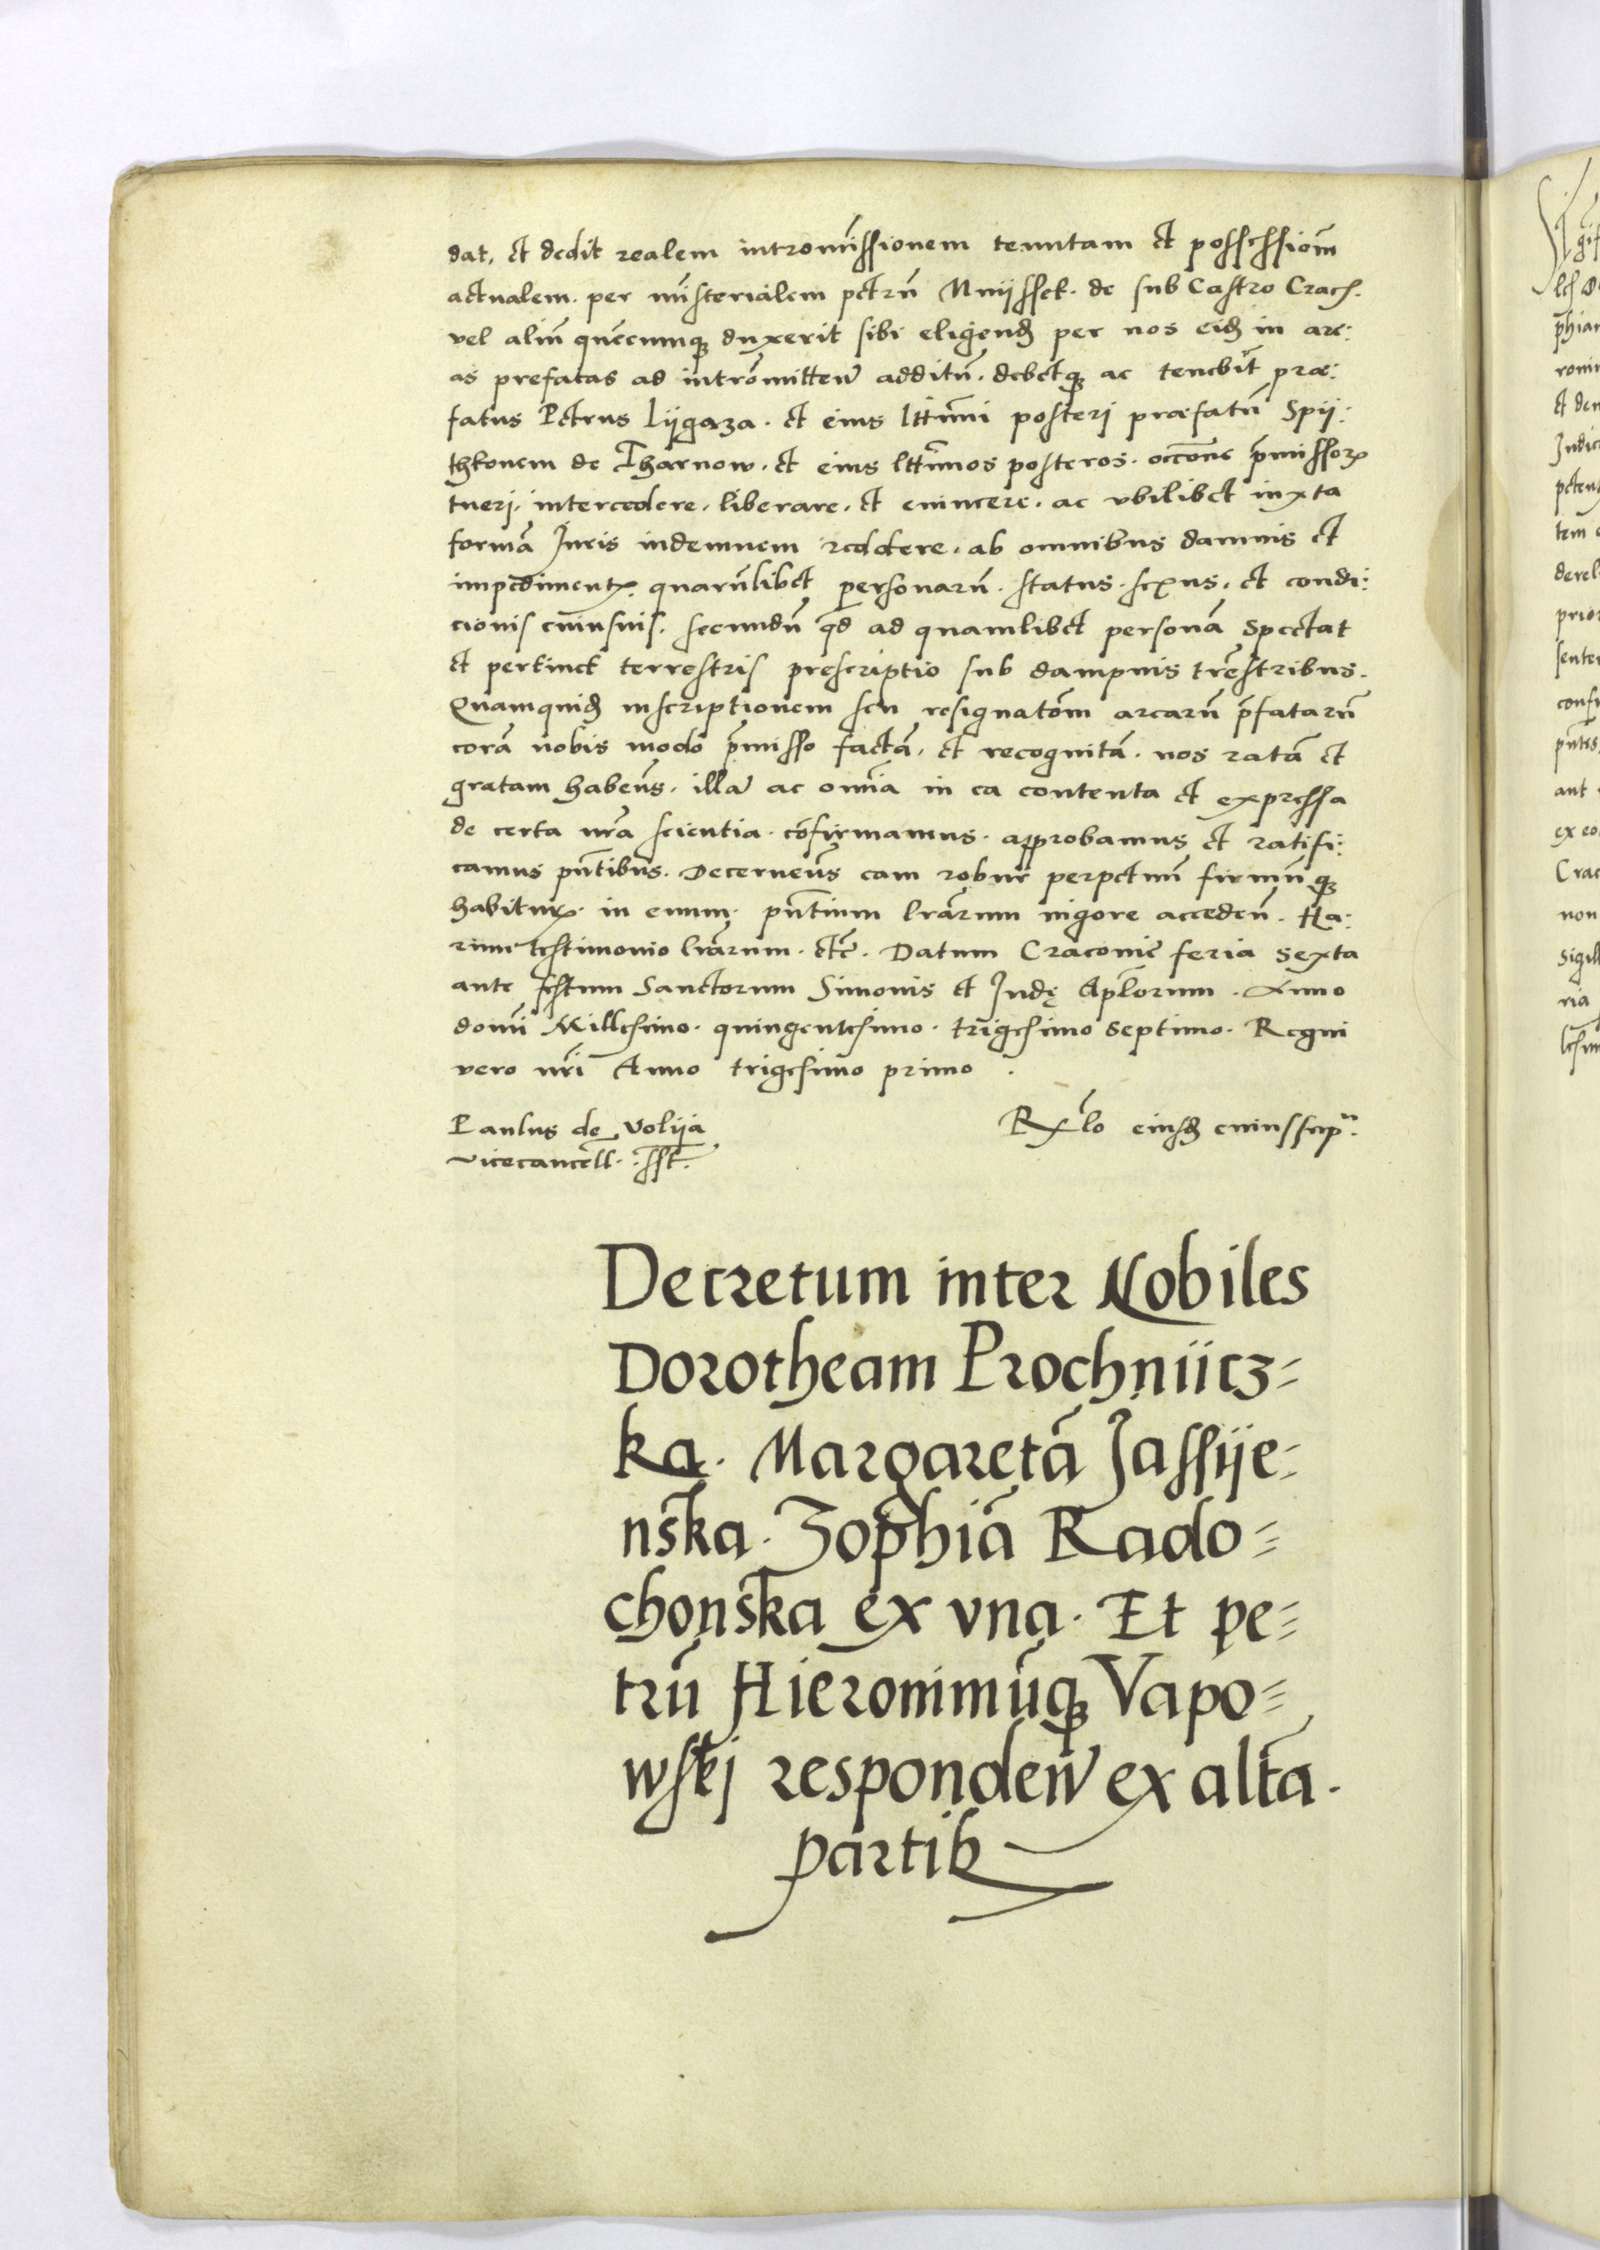 dat, et dedit realem intromissionem tenutam et possessiom̄
actualem. per ministerialem petrū Mnijssek. de sub Castro Crac̄.
vel aliū quēcumq̨ duxerit sibi eligend̄ per nos eid̄ in are:
as prefatas ad intromitten̄ additū. debetq̨ ac tenebit̄ præ:
fatus Petrus Lijgaza. et eius ltt̄imi posteri præfatū Spij:
thkonem de Tharnow. et eius ltt̄imos posteros. occ̄one p̄missoꝝ
tueri. intercedere. liberare. et euincere. ac vbilibet iuxta
formā Juris indemnem reddere. ab omnibus damnis et
impedimentꝭ. quarūlibet personarū. status. sexus. et condi:
cionis cuiusuis. secundū qd̄ ad quamlibet personā spectat
et pertinet terrestris prescriptio sub dampnis tr̄estribus.
Quamquid̄ inscriptionem seu resignatōm arearū p̄fatarū
corā nobis modo p̄misso factā. et recognitā. nos ratā et
gratam haben̄s. illā ac om̄ia in ea contenta et expressa
de certa nr̄a scientia. cōfirmamus. approbamus et ratifi:
camus pn̄tibus. Decernen̄s eam robur perpetuū firmūq̨
habiturꝭ. in euum. pn̄tium lr̄arum uigore acceden̄. Ha:
rum testimonio lr̄arum. etc̄. Datum Cracouie feria sexta
ante festum Sanctorum Simonis et Judę Apl̄orum. Anno
domī Millesimo. quingentesimo. trigesimo septimo. Regni
vero nr̄i Anno trigesimo primo.
Paulus de Volija
vicecancell. sst.
Rx̄lo eiusd̄ cuius sup.ᵃ
Decretum inter Nobiles
Dorotheam Prochnijcz-
ka. Margaretā Jassije-
nska. Zophiā Rado-
chonska ex vna. Et pe-
trū Hieronimūq̨ Vapo-
wskj responden̄ ex altā.
partib